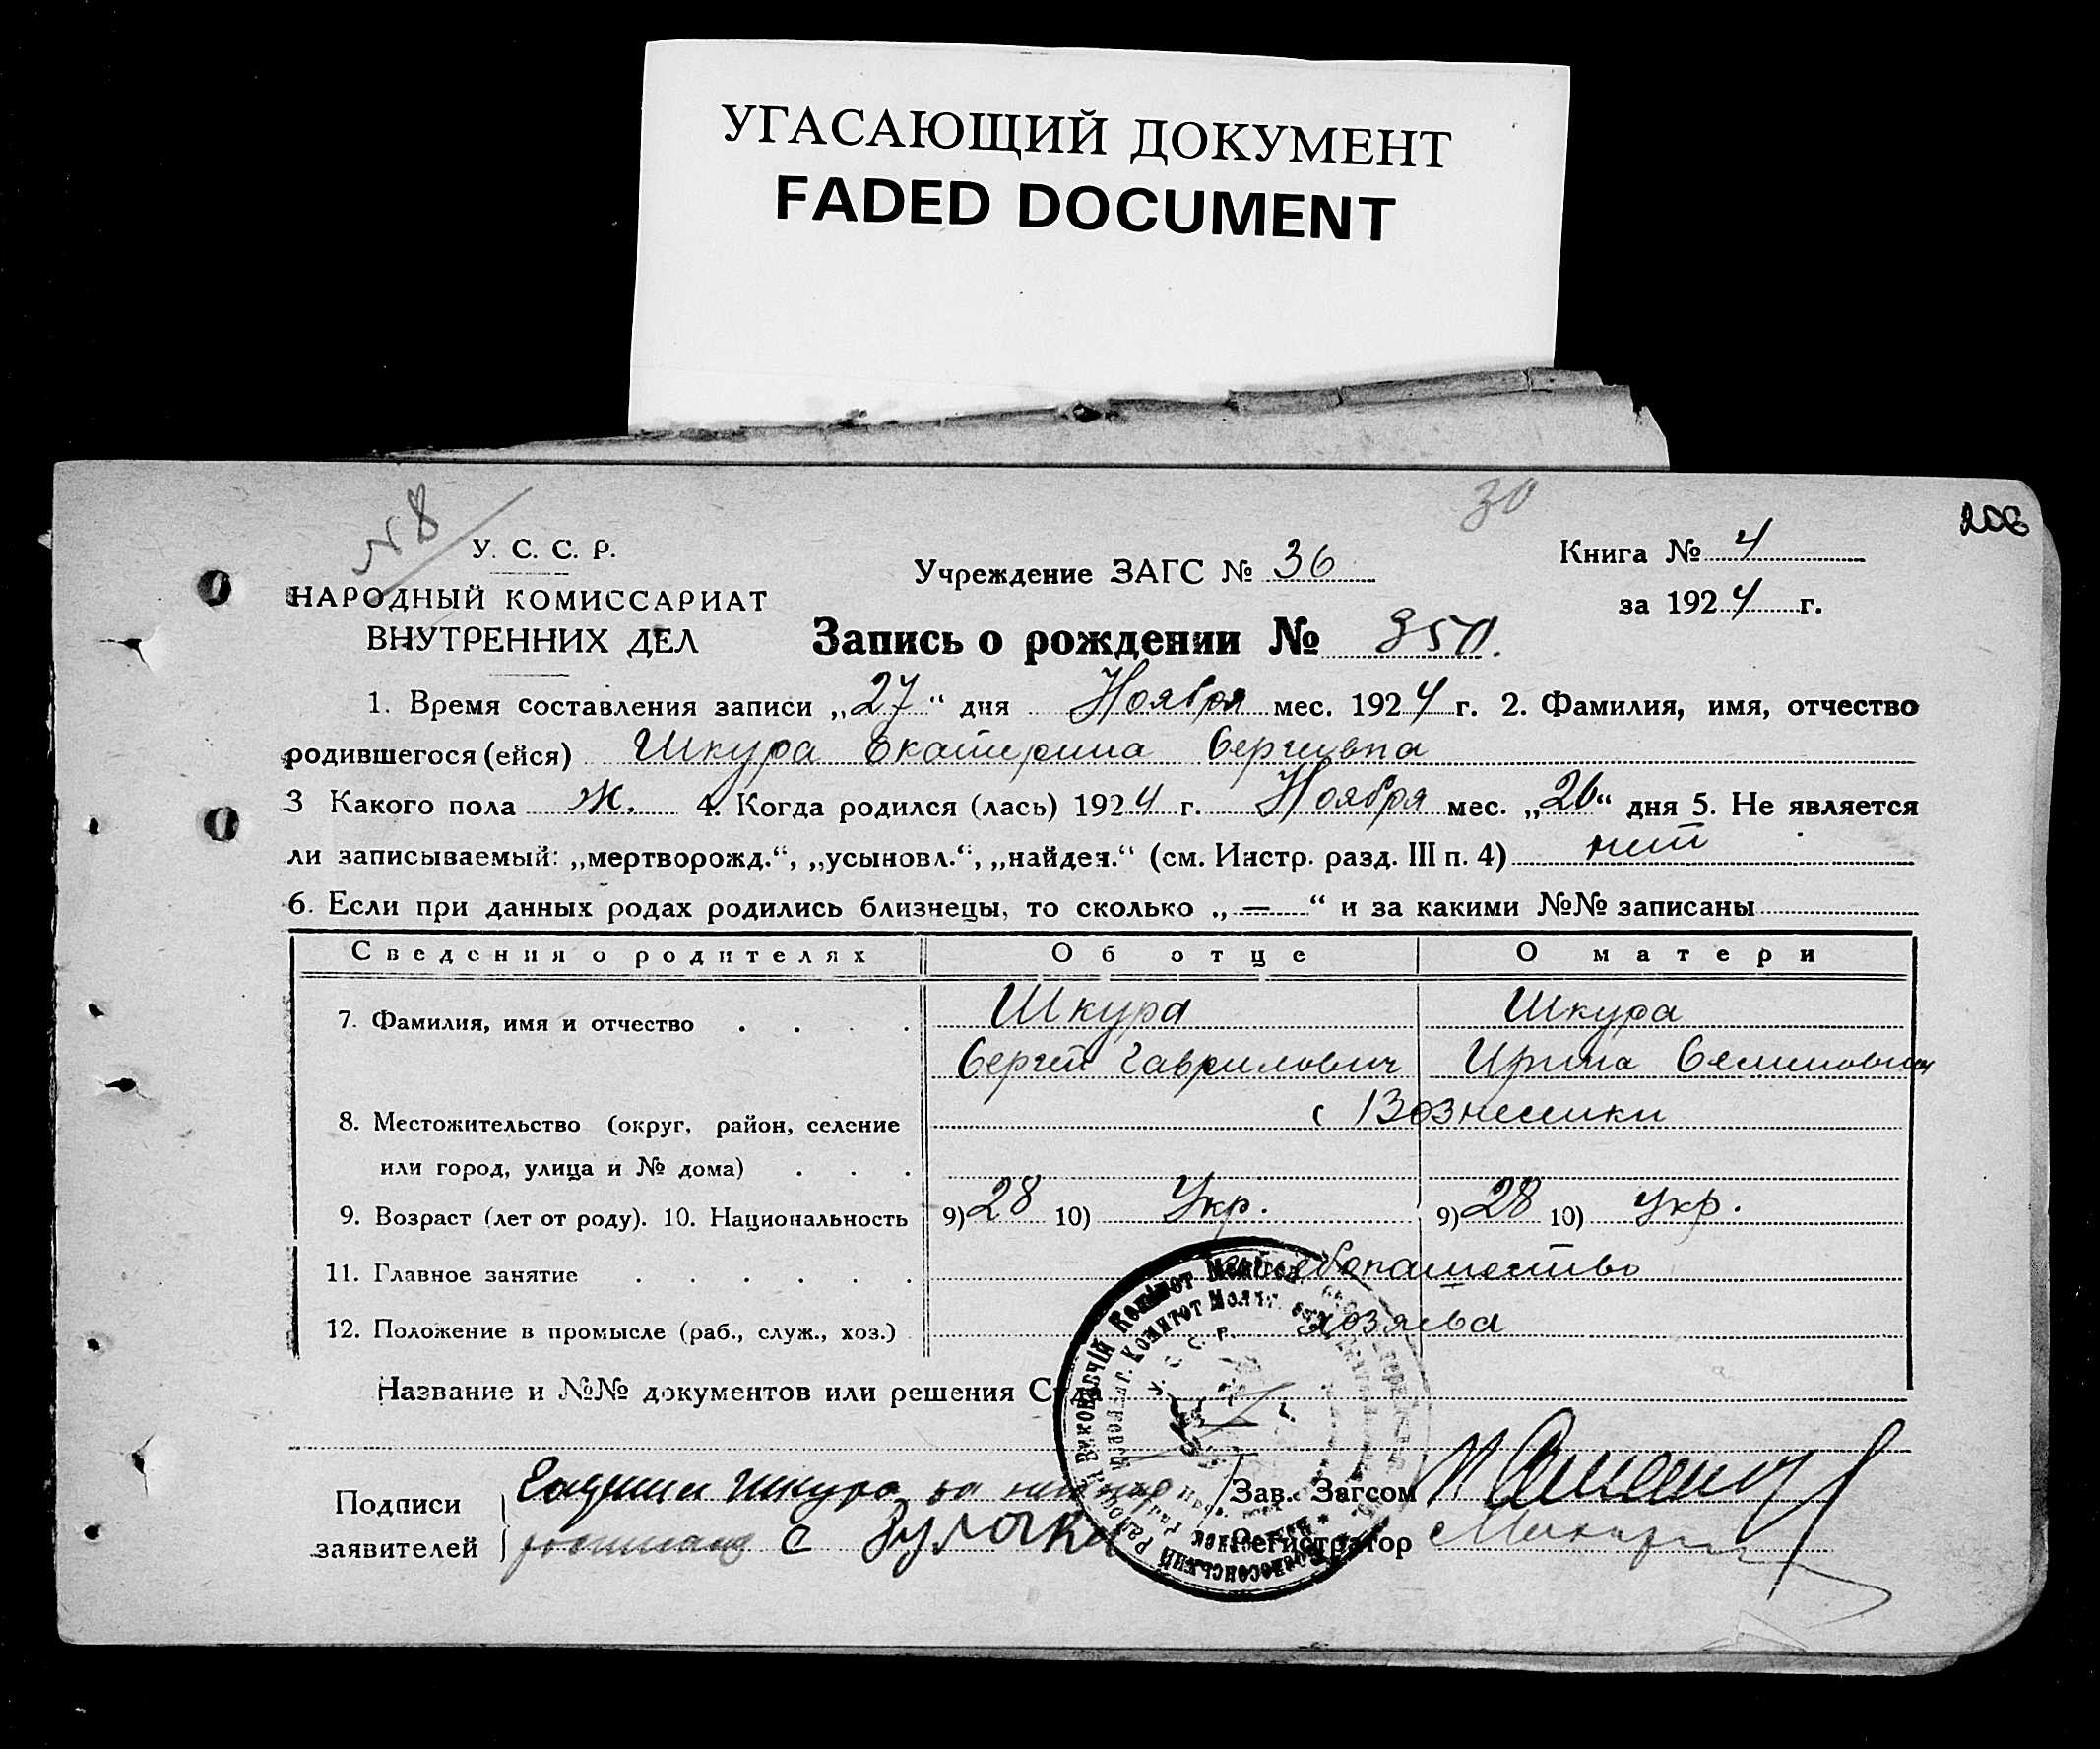 УГАСАЮЩИЙ ДОКУМЕНТ
FADED DOCUMENT
№ 8
30
206
У. С. С. Р.
НАРОДНЫЙ КОМИССАРИАТ
ВНУТРЕННИХ ДЕЛ
Учреждение ЗАГС № 36
Книга № 4
за 1924 г.
Запись о рождении № 350.
1. Время составления записи „27“ дня Ноября мес. 1924 г. 2. Фамилия, имя, отчество
родившегося (ейся) Шкура Екатерина Сергиевна
3 Какого пола ж. 4. Когда родился (лась) 1924 г. Ноября мес. „26“ дня 5. Не является
ли записываемый: „мертворожд.“, „усыновл.“, „найден.“ (см. Инстр. разд. III п. 4) нет
6. Если при данных родах родились близнецы, то сколько „—“ и за какими №№ записаны
Сведения о родителях Об отце О матери
7. Фамилия, имя и отчество Шкура Шкура
Сергей Гаврилович Ирина Семеновна
8. Местожительство (округ, район, селение с Вознесенки
или город, улица и № дома)
9. Возраст (лет от роду). 10. Национальность 9) 28 10) Укр. 9) 28 10) Укр.
11. Главное занятие хлебопашество
12. Положение в промысле (раб., служ., хоз.) хозяева
Название и №№ документов или решения Суда
Подписи Шкура за Зав. Загсом
заявителей С Регистратор